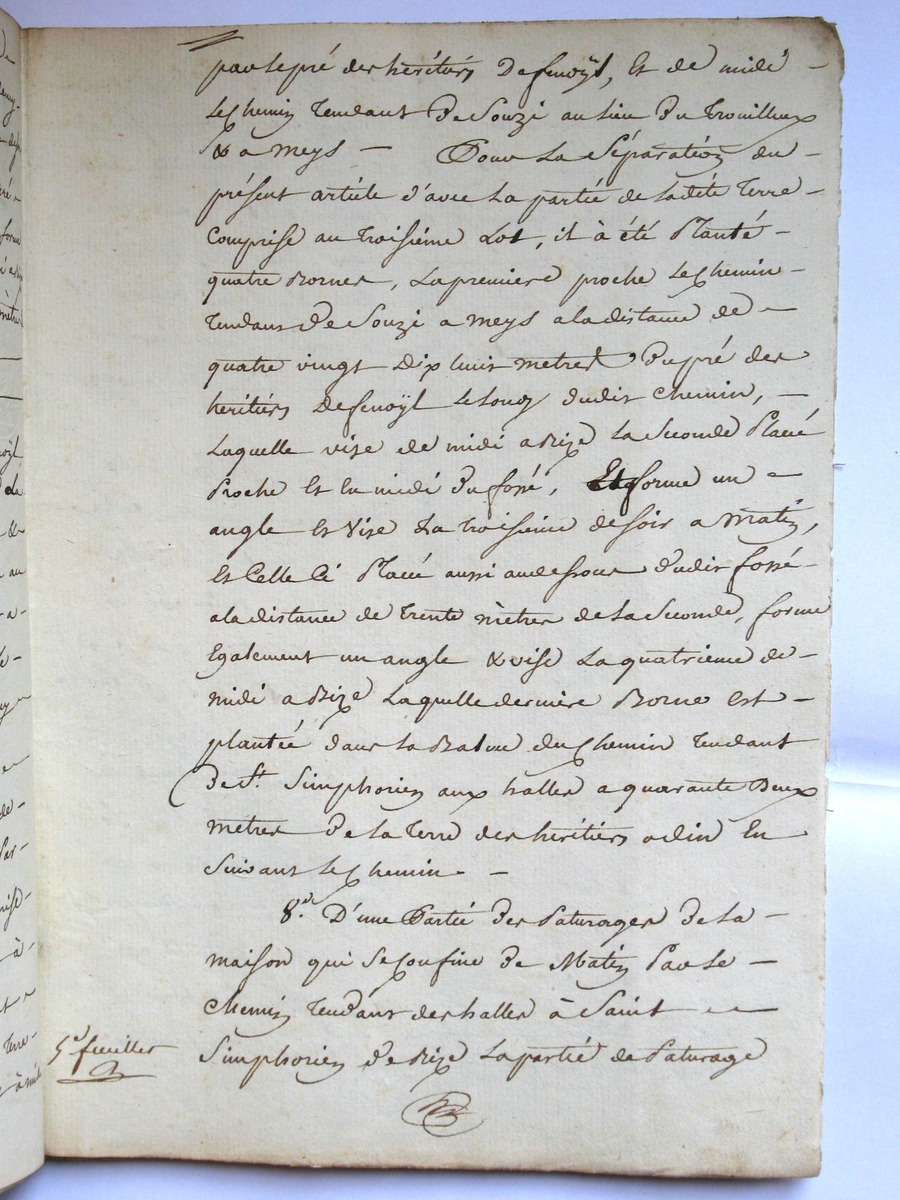 par le pré des héritiers Defenoÿl, Et de midi
le Chemin Tendant De Souzi au lieu Du Trouilleux
& a Meys — Pour La Séparation du
présent article d'avec La partie de Ladite Terre
Comprise au Troisième Lot, il à été Planté
quatre Bornes, La premiere proche le Chemin
Tendant De Souzi a Meys a la distance de
quatre vingt Dix huit metres Du pré des
héritiers Defenoÿl le Long dudit Chemin,
Laquelle vise de midi a Bize La Seconde Placé
Proche Et En midi Du fossé, Et forme un
angle Et Vise La Troisieme de Soir a Matin,
Et Celle Ci Placé aussi au dessous Dudit fossé
a la distance de Trente mètres de La Seconde, forme
Egalement un angle & vise La quatrieme de
midi a Bize Laquelle derniere Borne Est
plantée dans La Balme du Chemin Tendant
De St. Simphorien aux halles a quarante Deux
metres De La Terre des héritiers odin En
Suivant le Chemin.
8.° D'une Partie Des Paturages De La
maison qui Se Confine De Matin Par le
Chemin Tendant des halles à Saint
Simphorien De Bize La partie de Paturage
5e feuillet